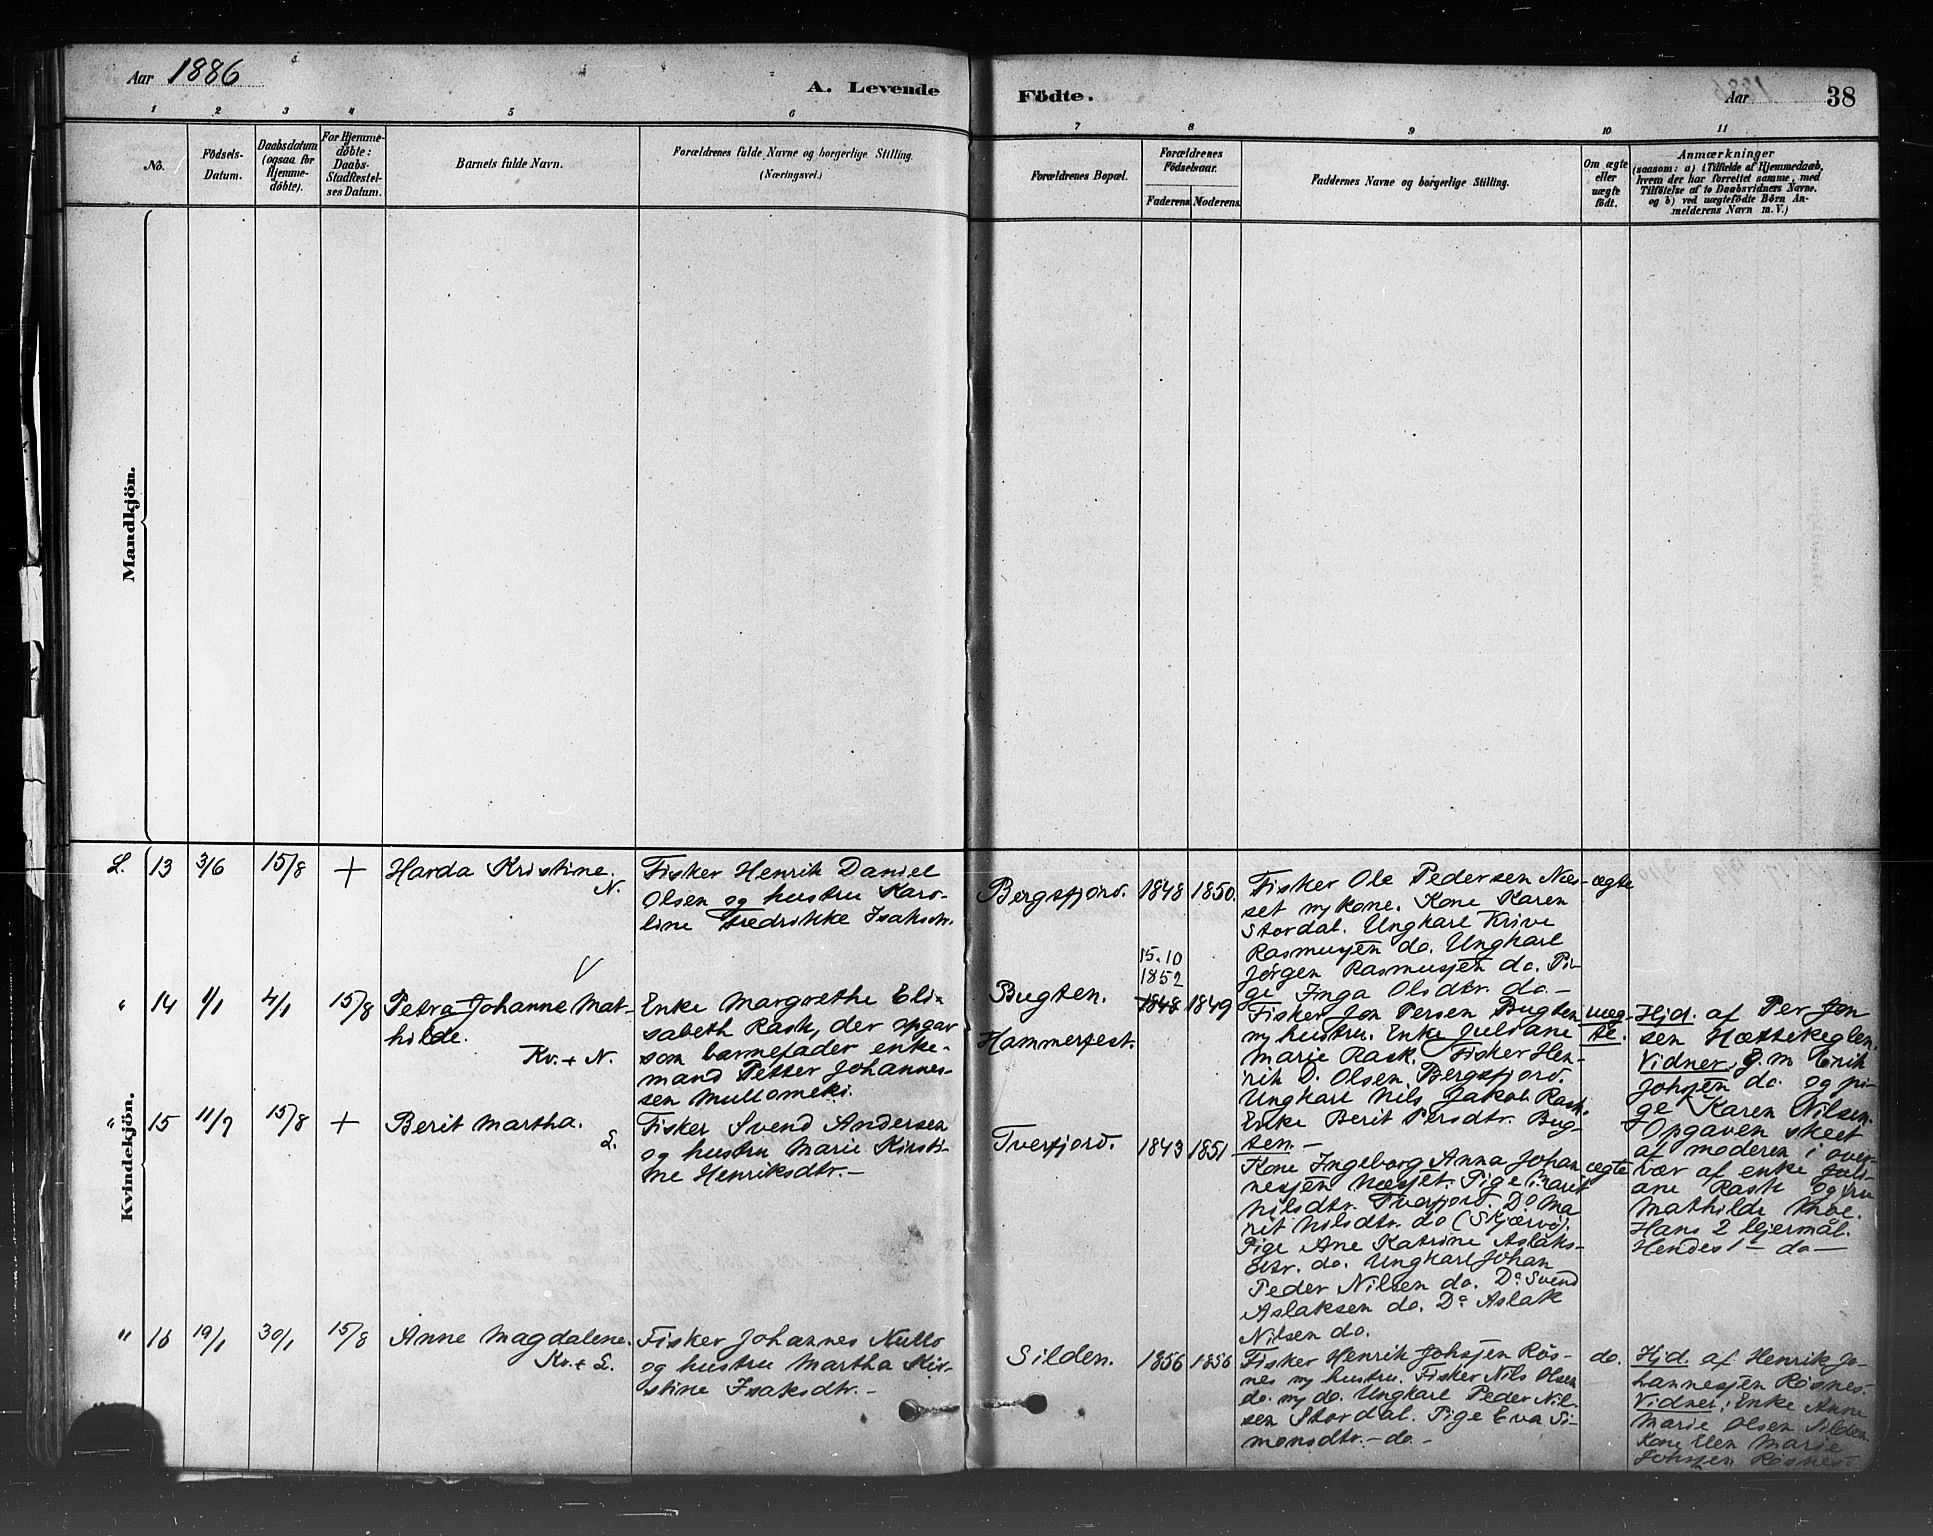 Aar 1886
A. Levende
Födte.
Aar
38
1
2
3
4
5
6
7
8
9
10
11
No.
Födsels-
Datum.
Daabsdatum
(ogsaa for
Hjemme-
døbte).
For Hjemme-
døbte:
Daabs-
Stadfæstel-
ses Datum.
Barnets fulde Navn.
Forældrenes fulde Navne og borgerlige Stilling.
(Næringsvei.)
Forældrenes Bopæl.
Forældrenes
Födselsaar.
Faderens
Moderens.
Faddernes Navne og borgerlige Stilling.
Om ægte
eller
uægte
födt.
Anmærkninger
(saasom: a) i Tilfælde af Hjemmedaab,
hvem der har forrettet samme, med
Tilföielse af to Daabsvidners Navne.
og b) ved uægtefödte Börn An-
melderens Navn m.V.)
Mandkjön.
Kvindekjön.
L. 13 3/6 15/8 +
Harda Kristine.
N.
Fisker Henrik Daniel
Olsen og hustru Karo-
line Fredrikke Isaksdtr.
Bergsfjord. 1848 1850.
Fisker Ole Pedersen Næs-
set m/ kone. Kone Karen
Stordal. Ungkarl Krive
Rasmussen do. Ungkarl
Jörgen Rasmussen do. Pi-
ge Inga Olsdtr. do. —
ægte
" 14 1/1 4/1 15/8
Petra Johanne Mat-
hilde.
Kv. + N.
Enke Margrethe Eli-
sabeth Rask, der opgav
som barnefader enke-
mand Petter Johannes-
sen Mullomeki.
Bugten.
Hammerfest.
15.10
1852
1848 1849
Fisker Jon Persen Bugten
m/ hustru. Enke Juliane
Marie Rask. Fisker Hen-
rik D. Olsen, Bergsfjord.
Ungkarl Nils Jakob Rask.
Enke Berit Persdtr. Bug-
ten. —
uæg-
te.
Hjd. af Per Jon
sen Hættekeglen.
Vidner: g.m Erik
Johsen do. og pi-
ge Karen Nilsen.
Opgaven skeet
af moderen i over-
vær af enke Juli-
ane Rask og fru
Mathilde Moe.
Hans 2 lejermål.
Hendes 1 — do —
" 15 11/7 15/8 +
Berit Martha.
L.
Fisker Svend Andersen
og hustru Marie Kirsti-
ne Henriksdtr. —
Tverfjord. 1843 1851
Kone Ingeborg Anna Johan
nessen Næsset. Pige Marit
Nilsdtr. Tverfjord. Do Ma
rit Nilsdtr. do (Skjærvö).
Pige Ane Katrine Aslaks-
dtr. do. Ungkarl Johan
Peder Nilsen do. Do Svend
Aslaksen do. Do Aslak
Nilsen do.
ægte
" 16 19/1 30/1 15/8
Anne Magdalene.
Kv. + L.
Fisker Johannes Nutto
og hustru Martha Kir-
stine Isaksdtr. —
Silden. 1856 1856
Fisker Henrik Johsen Rös-
nes m/ hustru. Fisker Nils Olsen
do. m/ do. Ungkarl Peder Nil-
sen Stordal. Pige Eva Si-
monsdtr. — do —
do.
Hjd. af Henrik Jo-
hannessen Rösnes.
Vidner: Enke Anne
Marie Olsen Silden.
Kone Elen Marie
Johsen Rösnes.